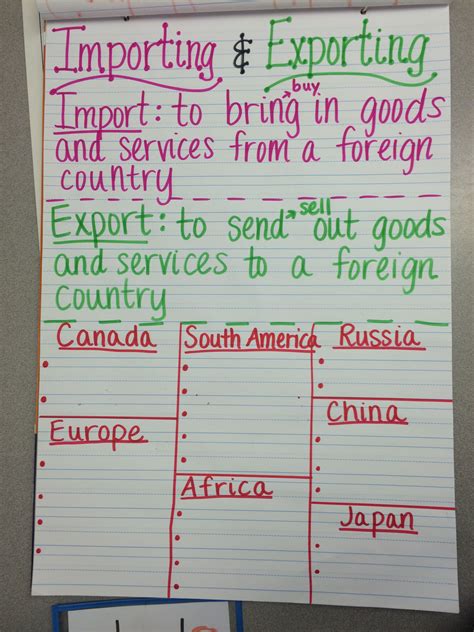 Importing & Exporting
buy
Import: to bring in goods
and services from a foreign
country
sell
Export: to send out goods
and services to a foreign
country
Canada
South America
Russia
Europe
China
Africa
Japan